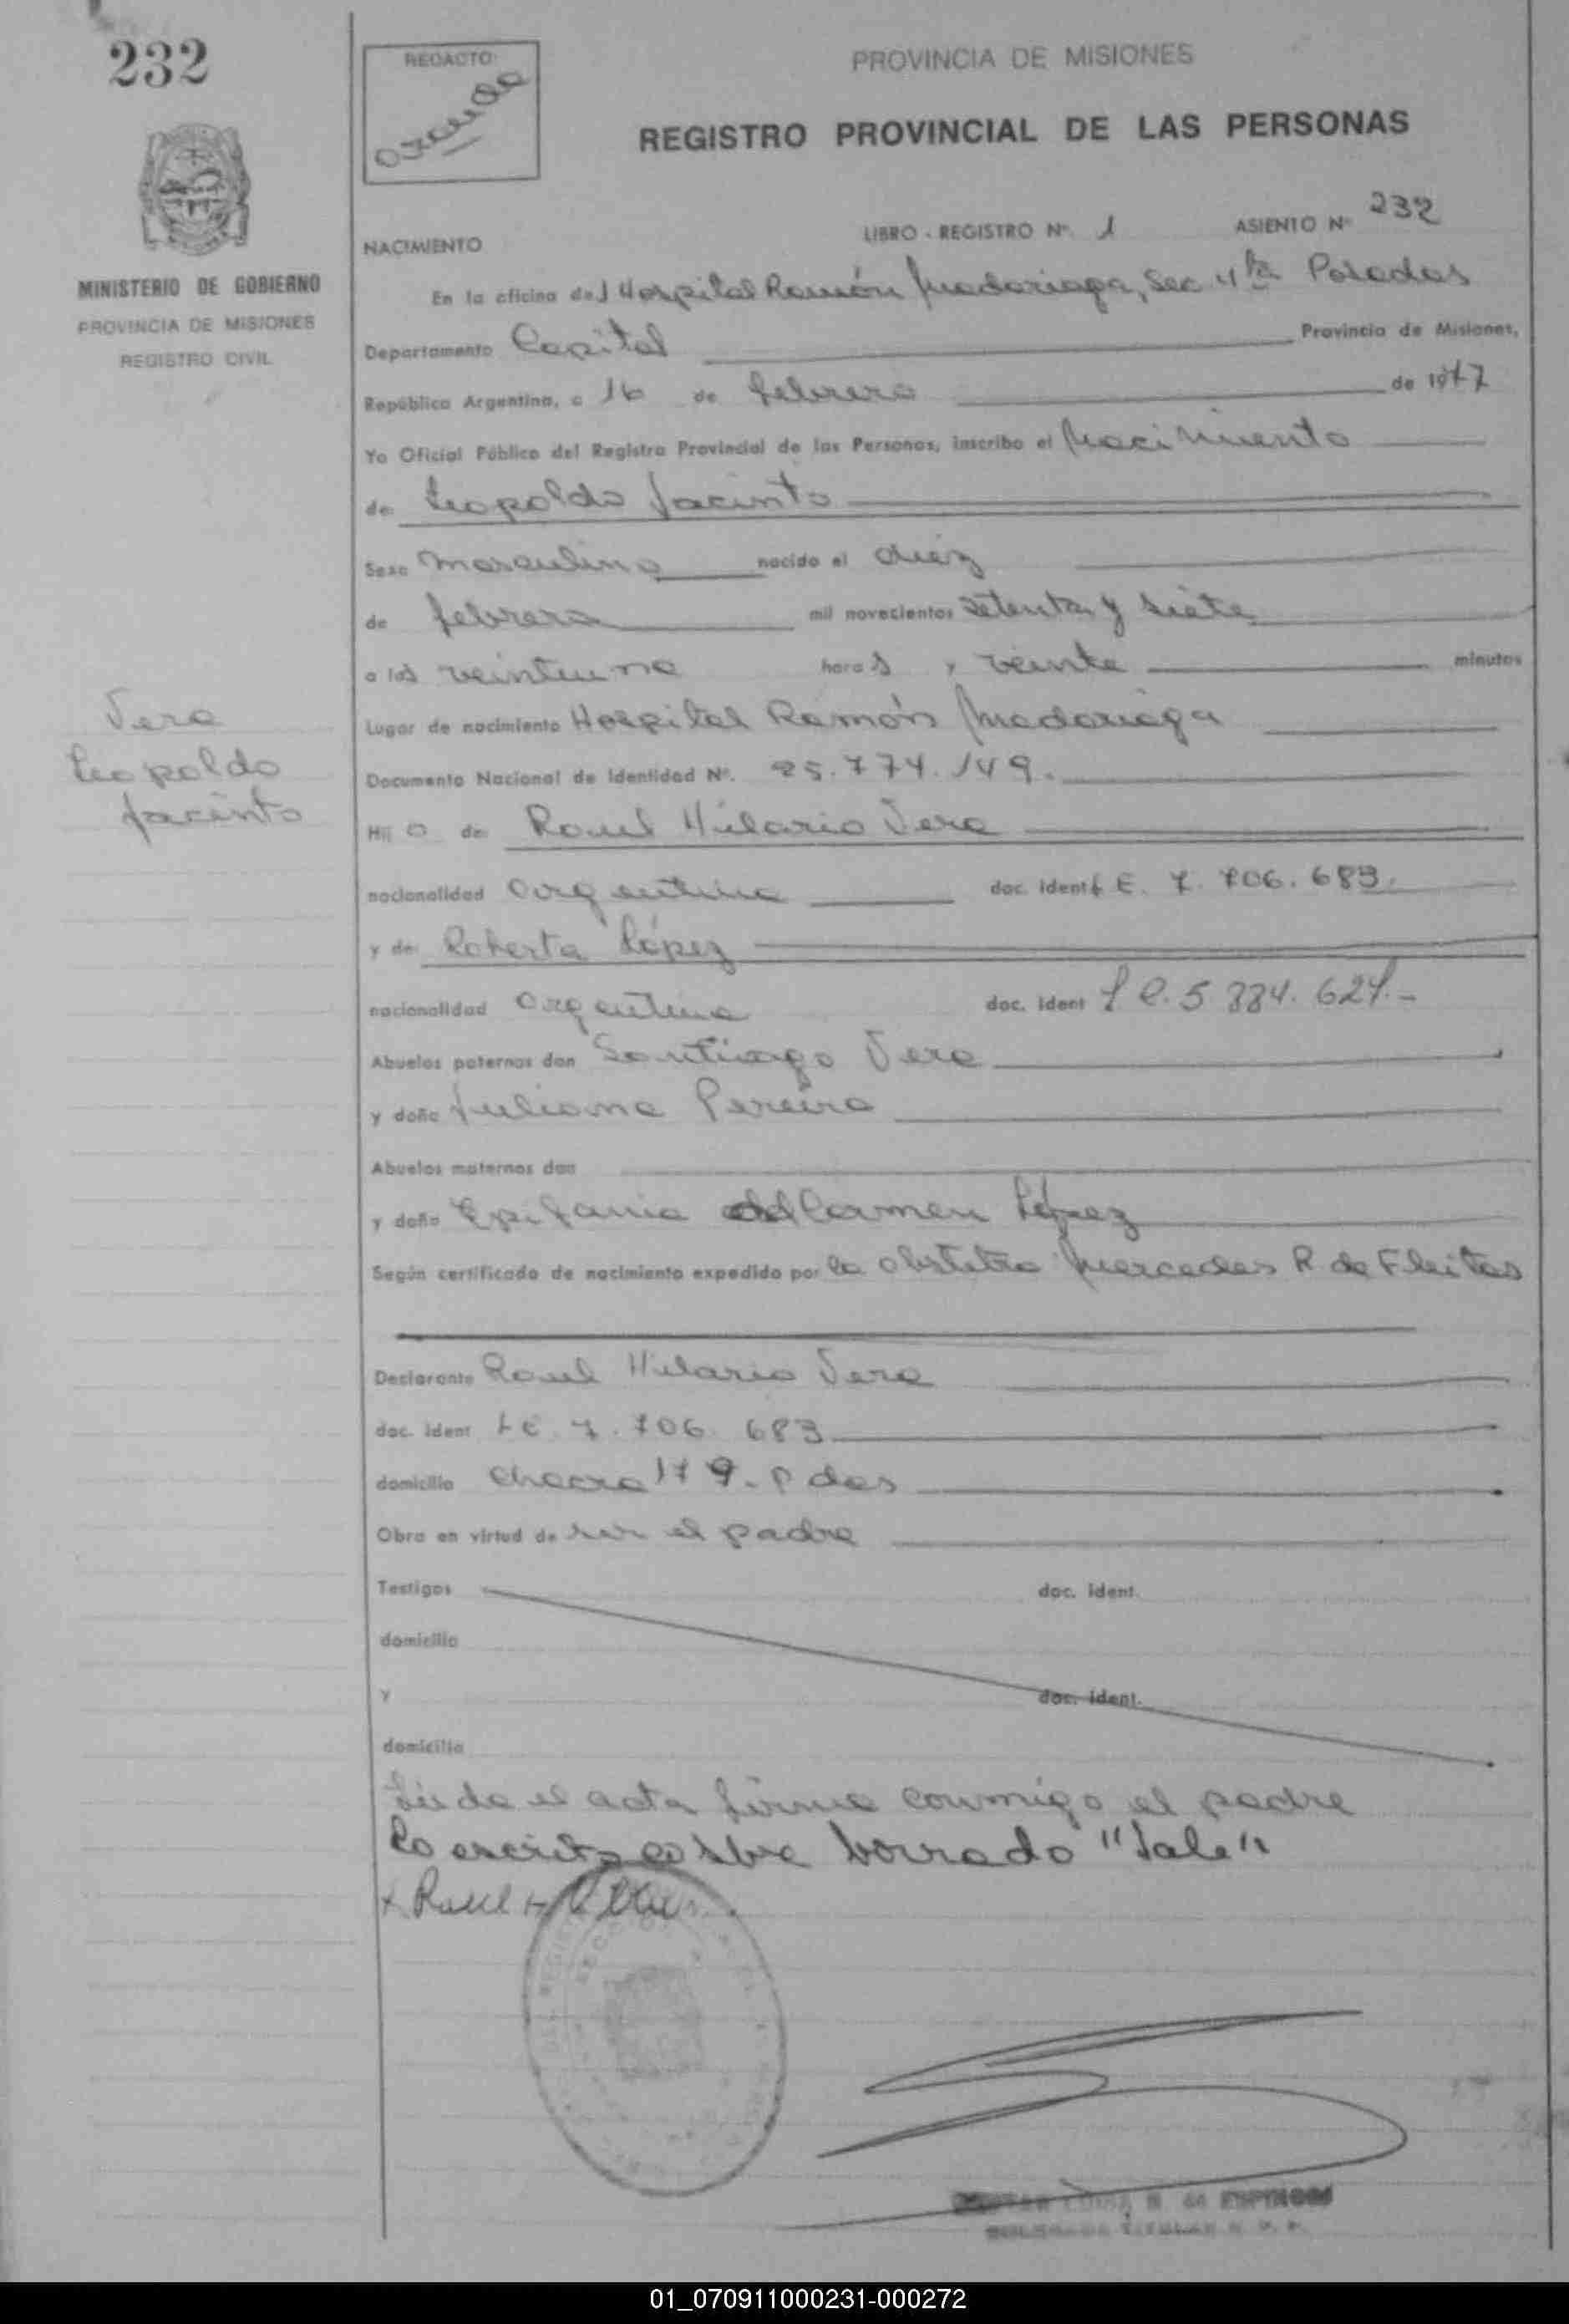 232
REDACTO
PROVINCIA DE MISIONES
REGISTRO PROVINCIAL DE LAS PERSONAS
MINISTERIO DE GOBIERNO
PROVINCIA DE MISIONES
REGISTRO CIVIL
NACIMIENTO
LIBRO - REGISTRO Nº. 1 ASIENTO Nº 232
En la oficina del Hospital Ramón Madariaga, Sec 4ta Posadas
Departamento Capital Provincia de Misiones,
República Argentina, a 16 de febrero de 1977
Yo Oficial Público del Registro Provincial de las Personas, inscribo el Nacimiento
de Leopoldo Jacinto
Sexo Masculino nacido el diez
de febrero mil novecientos setenta y siete
a las veintiuna horas y veinte minutos
Lugar de nacimiento Hospital Ramón Madariaga
Vera
Leopoldo
Jacinto
Documento Nacional de Identidad Nº. 25.774.149.
Hijo de Raul Hilario Vera
nacionalidad argentina doc. ident L E. 7.706.683.
y de Roberta López
nacionalidad argentina doc. ident
Abuelos paternos don Santiago Vera
y doña Juliana Pereira
Abuelos maternos don
y doña Epifania del Carmen López
Según certificado de nacimiento expedido por la obstetra Mercedes R. de Fleitas
Declarante Raul Hilario Vera
doc. ident LE. 7.706.683
domicilio chacra 179 - Pdas
Obra en virtud de ser el padre
Testigos doc. ident.
domicilio
y doc. ident.
domicilio
Leida el acta firma conmigo el padre
Lo escrito sobre borrado "Vale"
01_070911000231-000272